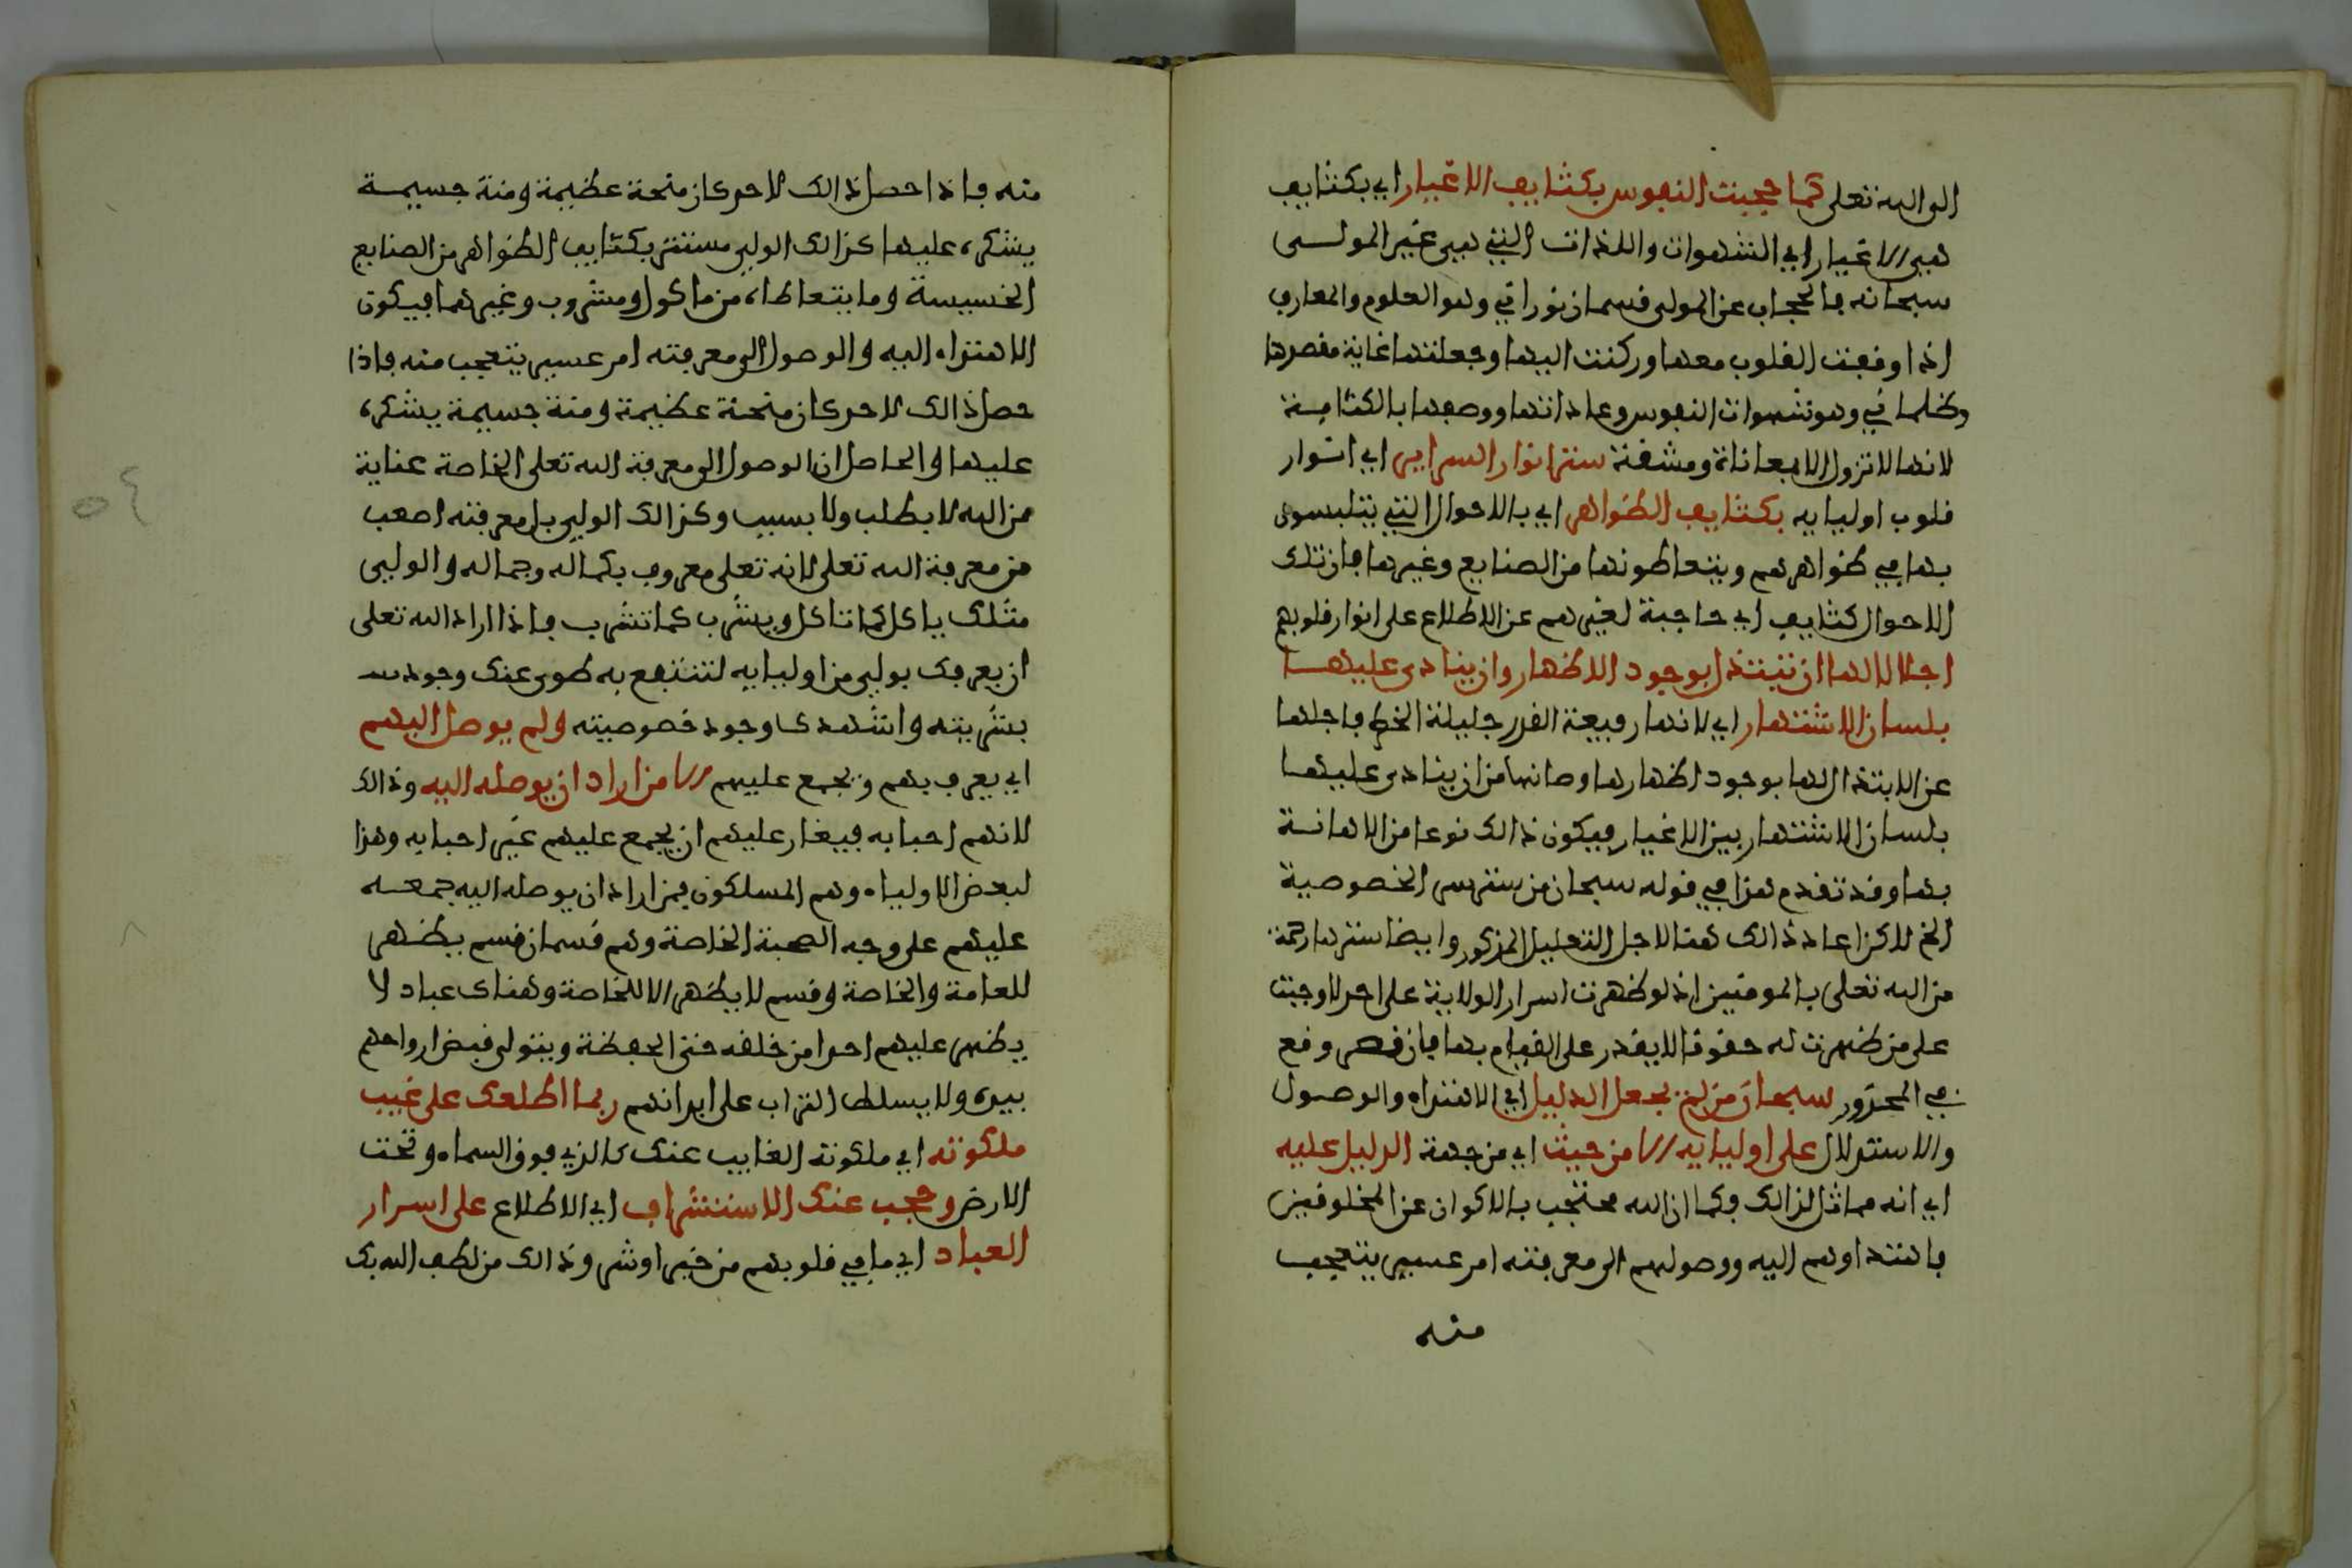 الى الله تعلى كما حجبت النفوس بكثايف الاغيار اي بكثايف
هي الاغيار اي الشهوات واللذات التي هي غير المولى
سبحانه فالحجاب عن المولى قسمان نوراني وهو العلوم والمعارف
اذا وقفت القلوب معها وركنت اليها وجعلتها غاية مقصدها
وظلماني وهو شهوات النفوس وعاداتها ووصفها بالكثافة
لانها لا تزول الا بمعاناة ومشقة ستر انوار السراير اي انوار
قلوب اوليايه بكثايف الظواهر اي بالاحوال التي يتلبسون
بها في ظواهرهم ويتعاطونها من الصنايع وغيرها فان تلك
الاحوال كثايف اي حاجبة لغيرهم عن الاطلاع على انوار قلوبهم
اجلالا لها ان تبتذل بوجود الاظهار وان ينادى عليها
بلسان الاشتهار اي لانها رفيعة القدر جليلة الخطر فاجلها
عن الابتذال لها بوجود اظهارها وصانها من ان ينادى عليها
بلسان الاشتهار بين الاغيار فيكون ذالك نوعا من الاهانة
بها وقد تقدم هذا في قوله سبحان من ستر سر الخصوصية
الخ لاكن اعاد ذالك هنا لاجل التعليل المذكور وايضا سترها رحمة
من الله تعلى بالمومنين اذ لو ظهرت اسرار الولاية على احد لاوجبت
على من ظهرت له حقوقا لا يقدر على القيام بها فان قصر وقع
في المحذور سبحان من لم يجعل الدليل اي الاهتداء والوصول
والاستدلال على اوليايه الا من حيث اي من جهة الدليل عليه
اي انه مماثل لذالك فكما ان الله محتجب بالاكوان عن المخلوقين
فاهتداوهم اليه ووصولهم الى معرفته امر عسير يتعجب
منه
منه فاذا حصل ذالك لاحد كان منحة عظيمة ومنة جسيمة
يشكره عليها كذالك الولي مستتر بكثايف الظواهر من الصنايع
الخسيسة وما يتعاطاه من ماكول ومشروب وغيرهما فيكون
الاهتداء اليه والوصول الى معرفته امر عسير يتعجب منه فاذا
حصل ذالك لاحد كان منحة عظيمة ومنة جسيمة يشكره
عليها والحاصل ان الوصول الى معرفة الله تعلى الخاصة عناية
من الله لا بطلب ولا بسبب وكذالك الولي بل معرفته اصعب
من معرفة الله تعلى لانه تعلى معروف بكماله وجماله والولي
مثلك ياكل كما تاكل ويشرب كما تشرب فاذا اراد الله تعلى
ان يعرفك بولي من اوليايه لتنتفع به طوى عنك وجود
بشريته واشهدك وجود خصوصيته ولم يوصل اليهم
اي يعرف بهم ويجمع عليهم الا من اراد ان يوصله اليه وذالك
لانهم احبابه فيغار عليهم ان يجمع عليهم غير احبابه وهذا
لبعض الاولياء وهم المسلكون فمن اراد ان يوصله اليه جمعه
عليهم على وجه الصحبة الخاصة وهم قسمان قسم يظهر
للعامة والخاصة وقسم لا يظهر الا للخاصة وهناك عباد لا
يظهر عليهم احدا من خلقه حتى الحفظة ويتولى قبض ارواحهم
بيده ولا يسلط التراب على ابدانهم ربما اطلعك على غيب
ملكوته اي ملكوته الغايب عنك كالذي فوق السماء وتحت
الارض وحجب عنك الاستشراف اي الاطلاع على اسرار
العباد اي ما في قلوبهم من خير او شر وذالك من لطف الله بك